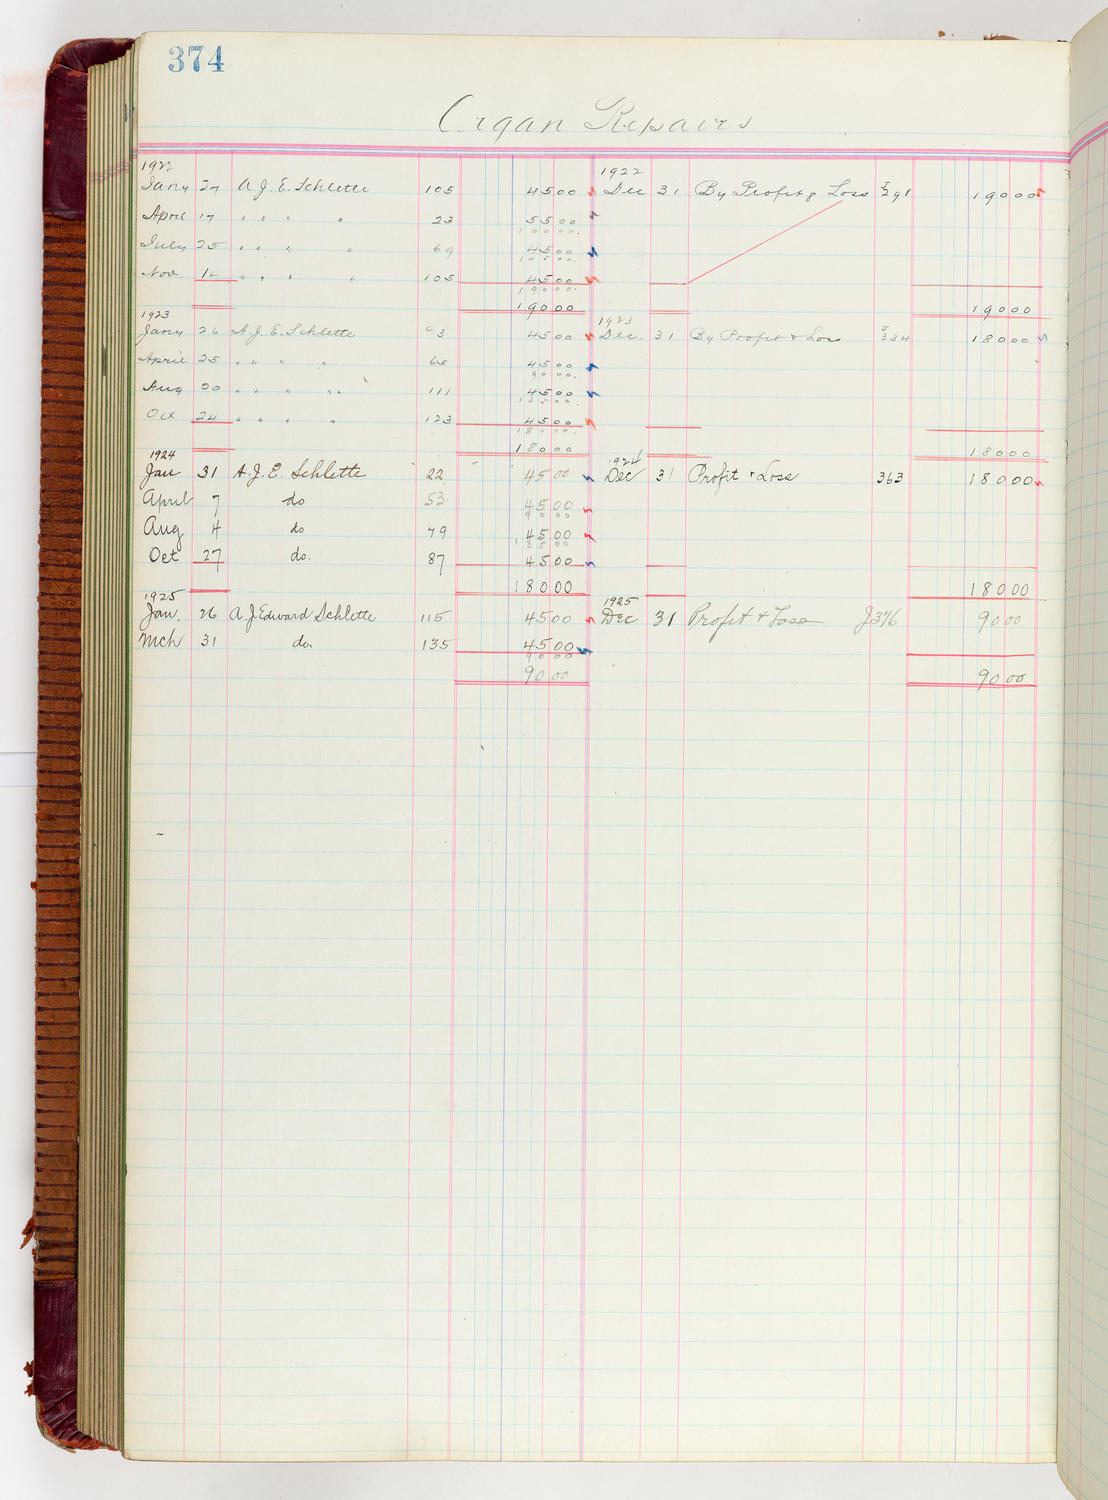 374
Organ Repairs
1922 1922
Jany 27 A J. E. Schlette 105 45 00 Dec 31 By Profit & Loss J 298 190 00
April 17 " " " " 23 55 00
100 00
July 25 " " " " 69 45 00
145 00
Nov 14 " " " " 105 45 00
190 00
190 00 190 00
1923 1923
Jany 26 A. J. E. Schlette 3 45 00 Dec. 31 By Profit & Loss J 334 180 00
April 25 " " " " 65 45 00
90 00
Aug 20 " " " " 111 45 00
135 00
Oct 24 " " " " 123 45 00
180 00
180 00 180 00
1924 1924
Jan 31 A. J. E. Schlette 22 45 00 Dec 31 Profit & Loss 363 180 00
April 7 do 53 45 00
90 00
Aug 4 do 79 45 00
135 00
Oct 27 do. 87 45 00
180 00 180 00
1925 1925
Jan. 26 A. J. Edward Schlette 115 45 00 Dec 31 Profit & Loss J376 90 00
Mch 31 do. 135 45 00
90 00
90 00 90 00